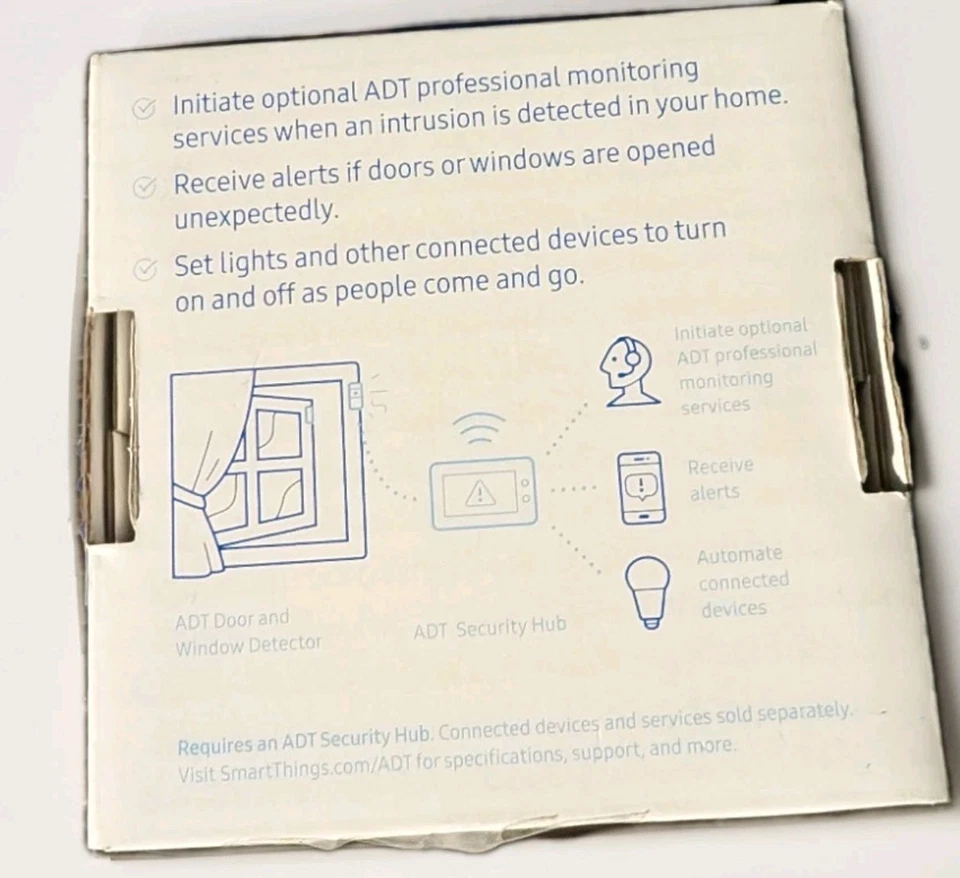 Initiate optional ADT professional monitoring
services when an intrusion is detected in your home.
Receive alerts if doors or windows are opened
unexpectedly.
Set lights and other connected devices to turn
on and off as people come and go.
Initiate optional
ADT professional
monitoring
services
Receive
alerts
Automate
connected
devices
ADT Door and
Window Detector
ADT Security Hub
Requires an ADT Security Hub. Connected devices and services sold separately.
Visit SmartThings.com/ADT for specifications, support, and more.